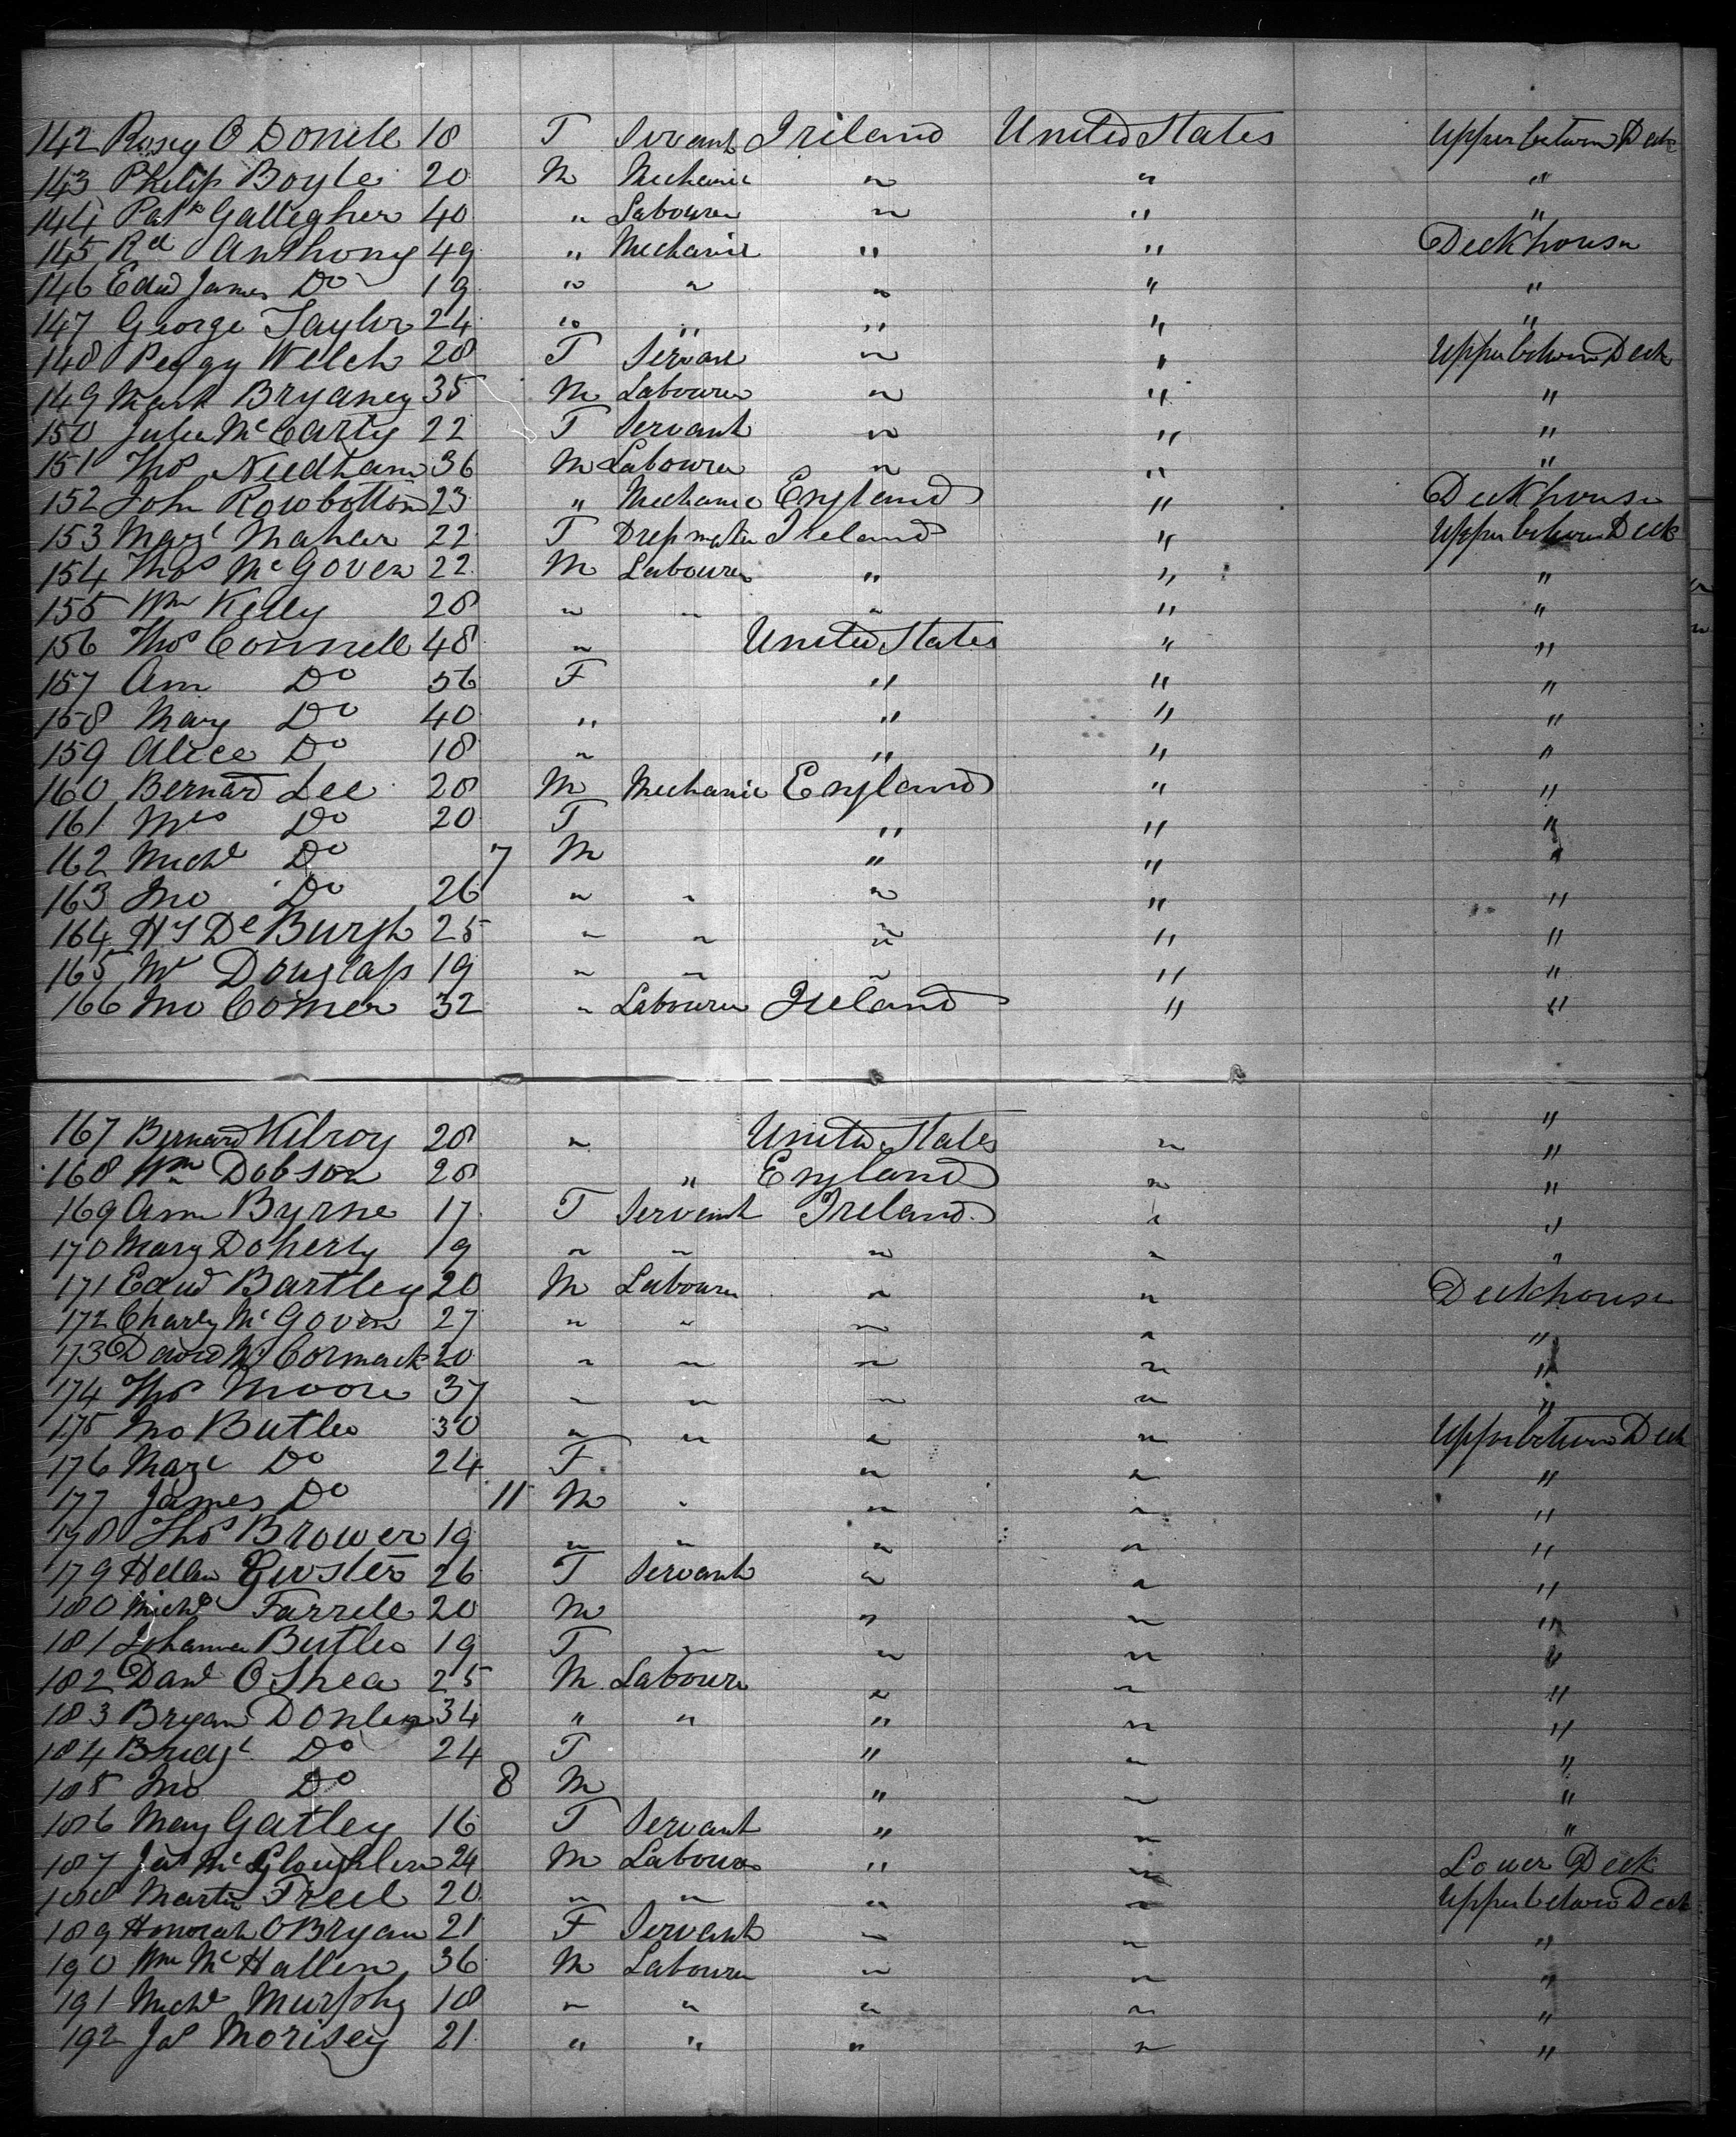 142 Rosey O Donele 18 F Servant Ireland United States Upper between Deck
143 Philip Boyle 20 M Mechanic " " "
144 Patk Gallegher 40 " Labourer " " "
145 Rd Anthony 49 " Mechanic " " Deckhouse
146 Edwd James Do 19 " " " " "
147 George Taylor 24 " " " " "
148 Peggy Welch 28 F Servant " " Upper between Deck
149 Mark Bryaney 35 M Labourer " " "
150 Julia McCarty 22 F Servant " " "
151 Thos Needham 36 M Labourer " " "
152 John Rowbottom 23 " Mechanic England " Deckhouse
153 Margt Mahar 22 F Dressmaker Ireland " Upper between Deck
154 Thos McGoven 22 M Labourer " " "
155 Wm Kelly 28 " " " " "
156 Thos Connell 48 " United States " "
157 Ann Do 56 F " " "
158 Mary Do 40 " " " "
159 Alice Do 18 " " " "
160 Bernard Lee 28 M Mechanic England " "
161 Mrs Do 20 F " " "
162 Michl Do 7 M " " "
163 Jno Do 26 " " " " "
164 Hy De Burgh 25 " " " " "
165 Douglass 19 " " " " "
166 Jno Comer 32 " Labourer Ireland " "
"
167 Bernard Kilroy 28 " United States " "
168 Wm Dobson 28 " England " "
169 Ann Byrne 17 F Servant Ireland " "
170 Mary Doherty 19 " " " " "
171 Edwd Bartley 20 M Labourer " " Deckhouse
172 Charly McGoven 27 " " " " "
173 David McCormack 20 " " " " "
174 Thos Moore 37 " " " " "
175 Jno Butler 30 " " " " Upper between Deck
176 Margt Do 24 F " " "
177 James Do 11 M " " " "
178 Thos Brower 19 " " " " "
179 Hellen 26 F Servant " " "
180 Michl Farrele 20 M " " "
181 Johanna Butler 19 F " " " "
182 Danl O Shea 25 M Labourer " " "
183 Bryan Donlen 34 " " " " "
184 Bridgt Do 24 F " " "
185 Jno Do 8 M " " "
186 Mary Gatley 16 F Servant " " "
187 Jas McGloughlen 24 M Labourer " " Lower Deck
188 Martin Freel 20 " " " " Upper between Deck
189 Honorah OBryan 21 F Servant " " "
190 Wm McHallen 36 M Labourer " " "
191 Michl Murphy 18 " " " " "
192 Jas Morisey 21 " " " " "